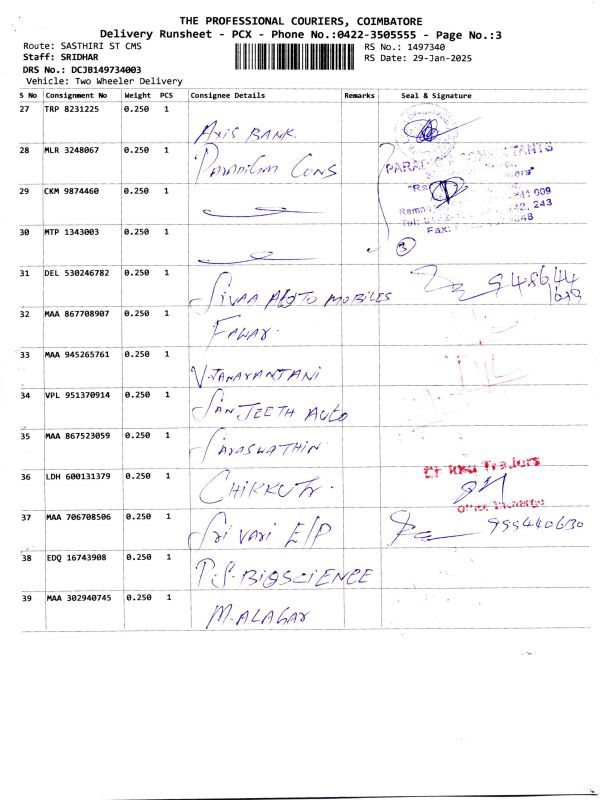 THE PROFESSIONAL COURIERS, COIMBATORE
Delivery Runsheet - PCX - Phone No.:0422-3505555 - Page No.:3
Route: SASTHIRI ST CMS RS No.: 1497340
Staff: SRIDHAR RS Date: 29-Jan-2025
DRS No.: DCJB149734003
Vehicle: Two Wheeler Delivery
S No Consignment No Weight PCS Consignee Details Remarks Seal & Signature
27 TRP 8231225 0.250 1 AXIS BANK.
28 MLR 3248067 0.250 1 Paradigm Cons
29 CKM 9874460 0.250 1
30 MTP 1343003 0.250 1 3
31 DEL 530246782 0.250 1 SIVAA AUTO MOBILES 948644
32 MAA 867708907 0.250 1
33 MAA 945265761 0.250 1
34 VPL 951370914 0.250 1 SANJEETH AUTO
35 MAA 867523059 0.250 1
36 LDH 600131379 0.250 1 CHIKKU Tr. Traders
37 MAA 706708506 0.250 1 Sri Vari E/P
38 EDQ 16743908 0.250 1 P.S. BIOSCIENCE
39 MAA 302940745 0.250 1